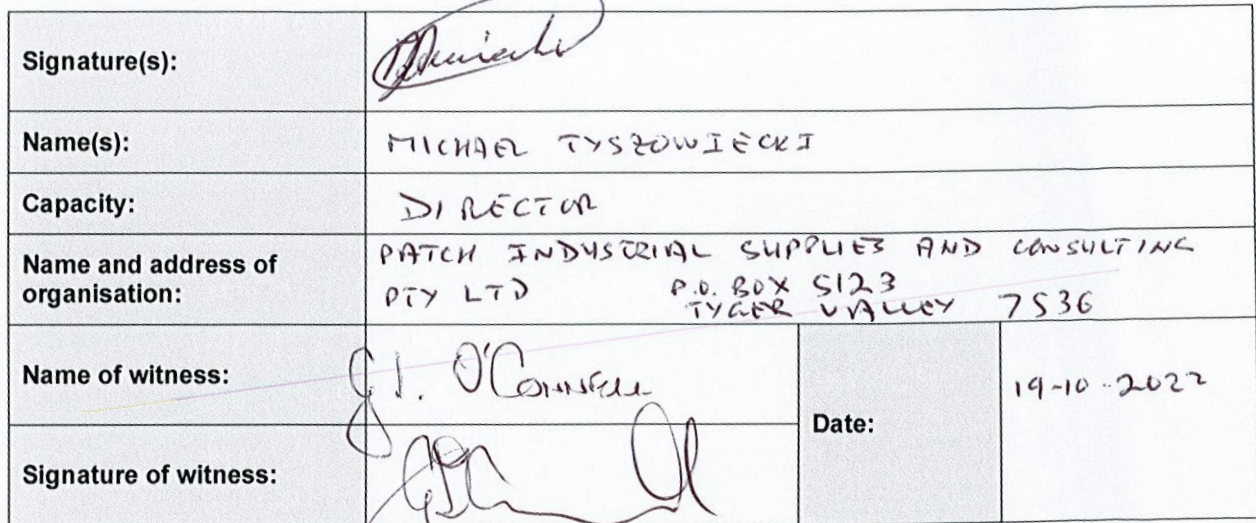 Signature(s):
Name(s): MICHAEL TYSZOWIECKI
Capacity: DIRECTOR
Name and address of organisation: PATCH INDUSTRIAL SUPPLIES AND CONSULTING
PTY LTD P.O. BOX 5123
TYGER VALLEY 7536
Name of witness: G.J. O'CONNELL
Date: 19-10-2022
Signature of witness: